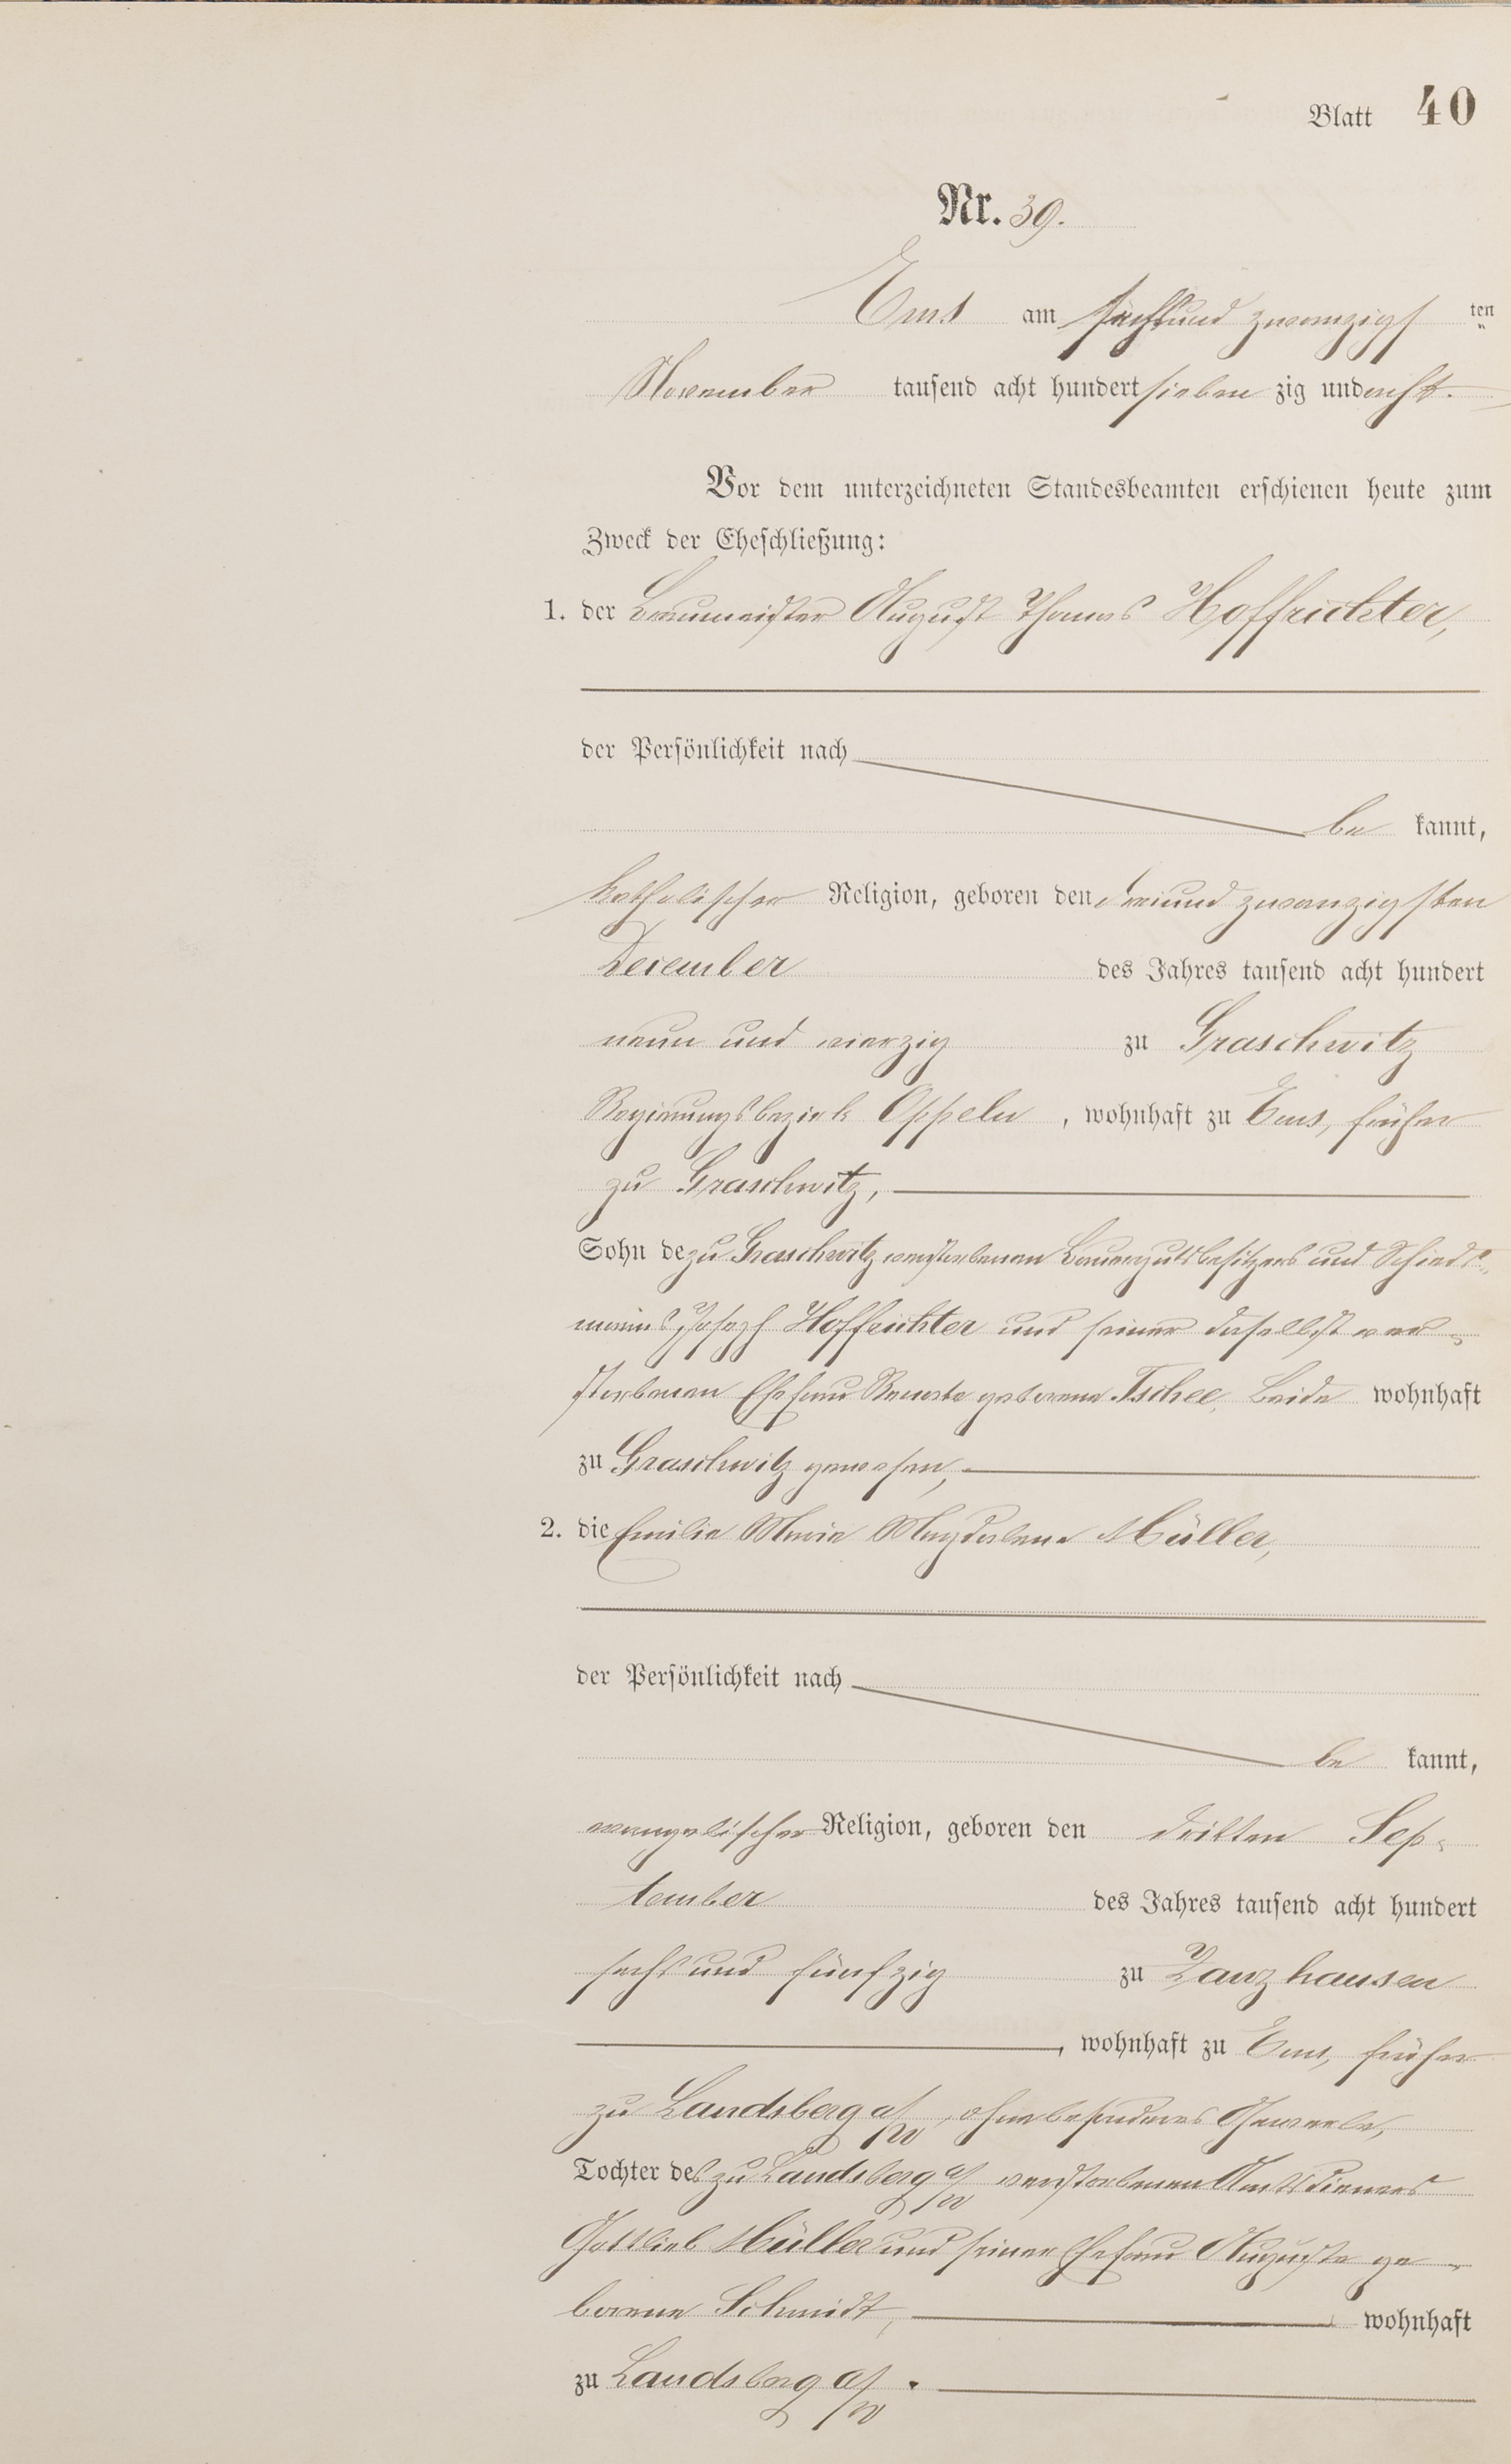 Blatt 40
Nr. 39.
Ems am sechsund zwanzigsten
November tausend acht hundert sieben zig und acht.
Vor dem unterzeichneten Standesbeamten erschienen heute zum
Zweck der Eheschließung:
1. der Baumeister August Thomas Hoffrichter,
der Persönlichkeit nach
be kannt,
katholischer Religion, geboren den dreiund zwanzigsten
December des Jahres tausend acht hundert
neun und vierzig zu Graschwitz
Regierungsbezirk Oppeln, wohnhaft zu Ems, früher
zu Graschwitz,
Sohn de zu Graschwitz verstorbenen Bauergutsbesitzers und Schieds-
manns Joseph Hoffrichter und seiner daselbst ver-
storbenen Ehefrau geborene Tschee, beide wohnhaft
zu Graschwitz gewesen,
2. die Emilie Marie Magdalena Müller,
der Persönlichkeit nach
be kannt,
evangelischer Religion, geboren den dritten Sep-
tember des Jahres tausend acht hundert
sechs und fünfzig zu Zanzhausen
, wohnhaft zu Ems, früher
zu Landsberg a/W, ohne besonderes Gewerbe,
Tochter des zu Landsberg a/W verstorbenen Amtsdieners
Gottlieb Müller und seiner Ehefrau Auguste ge-
borene Schmidt, wohnhaft
zu Landsberg a/W.